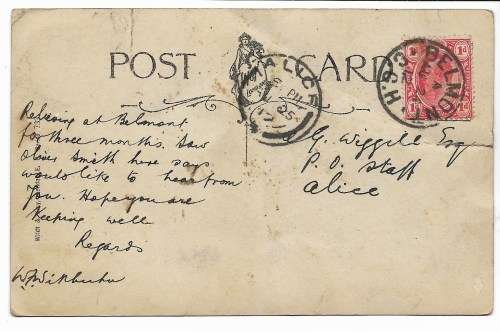 POST CARD
ALICE
PM
25
17
BELMONT
C.G.H.
1d
Relieving at Belmont
for three months. Saw
Olive Smith here says
would like to hear from
you. Hope you are
Keeping well
Regards
G. Wiggill Esq
P.O. Staff
Alice